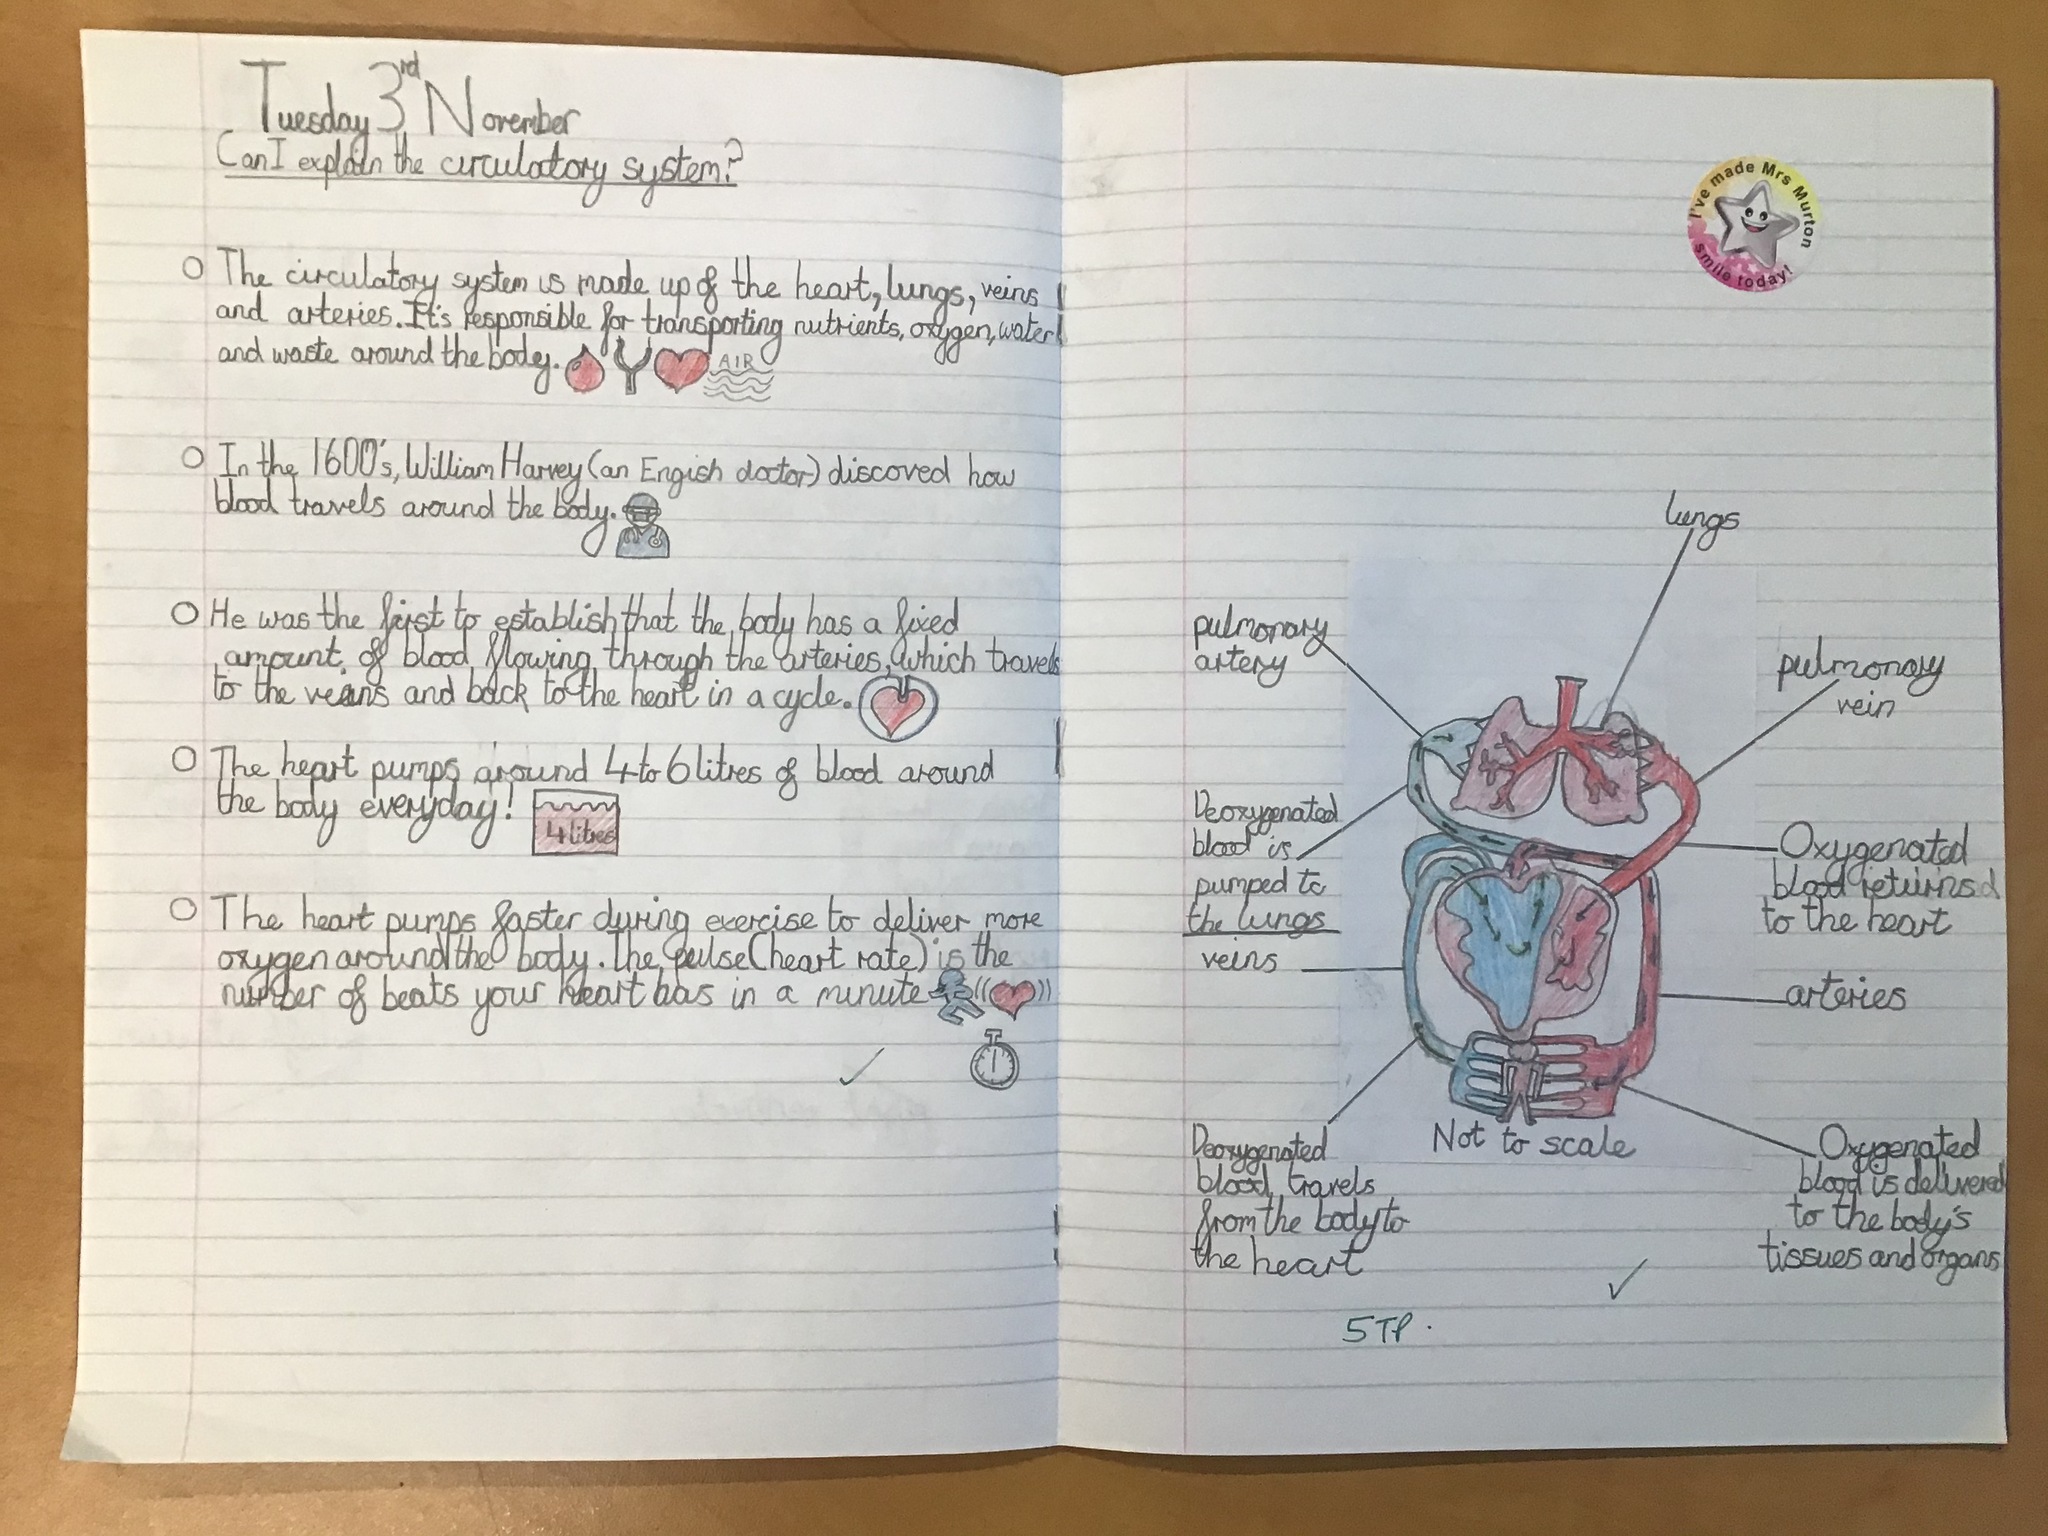 Tuesday 3rd November
Can I explain the circulatory system?
The circulatory system is made up of the heart, lungs, veins
and arteries. It's responsible for transporting nutrients, oxygen, water
and waste around the body.
AIR
In the 1600's, William Harvey (an Engish doctor) discoved how
blood travels around the body.
He was the first to establish that the body has a fixed
amount of blood flowing through the arteries, which travels
to the veins and back to the heart in a cycle.
The heart pumps around 4 to 6 litres of blood around
the body everyday!
4 litres
The heart pumps faster during exercise to deliver more
oxygen around the body. The pulse (heart rate) is the
number of beats your heart has in a minute
I've made Mrs Murton
smile today!
lungs
pulmonary
artery
pulmonary
vein
Deoxygenated
blood is
pumped to
the lungs
Oxygenated
blood returns
to the heart
veins
arteries
Not to scale
Deoxygenated
blood travels
from the body to
the heart
Oxygenated
blood is delivered
to the body's
tissues and organs
5TP.